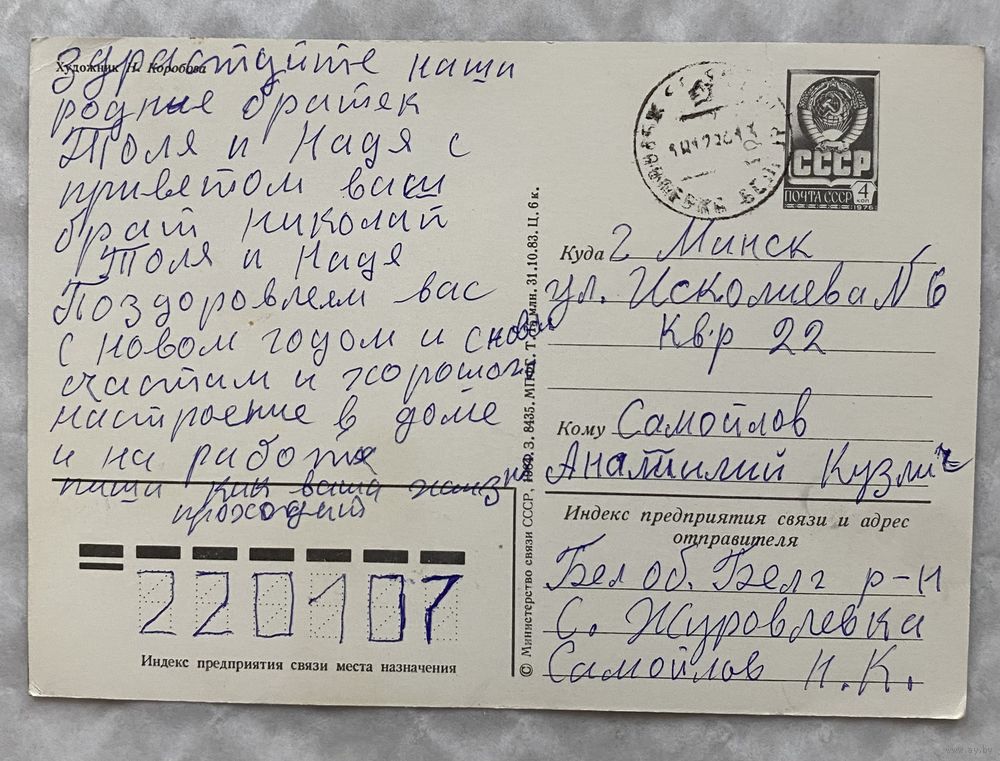 Художник Н. Коробова
здрастуйте наши
родные братек
Толя и Надя с
приветом ваш
брат Николай
Толя и Надя
Поздоровлеем вас
с новом годом и с новом
счастам и хорошом
настроение в доме
и на работе
пиши как ваша жизн
проходит
220107
Индекс предприятия связи места назначения
© Министерство связи СССР, 1984. З. 8435. МПФГ. Т. 16 млн. 31.10.83. Ц. 6 к.
СССР
ПОЧТА СССР 4 КОП
1976
Куда г Минск
ул. Исколиева N 6
Кв.р 22
Кому Самойлов
Анатилий Кузмич
Индекс предприятия связи и адрес
отправителя
Бел об. Белг р-н
С. Журовлевка
Самойлов Н.К.
www.ay.by